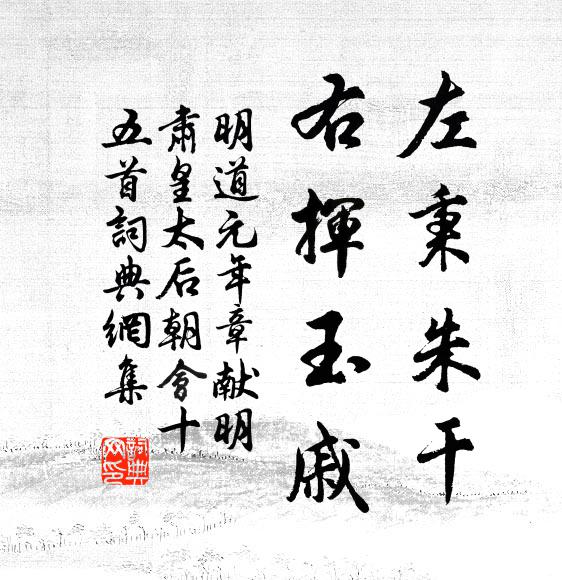 左秉朱干
右揮玉戚
明道元年章献明
肅皇太后朝會十
五首詞典網集
詞典网印